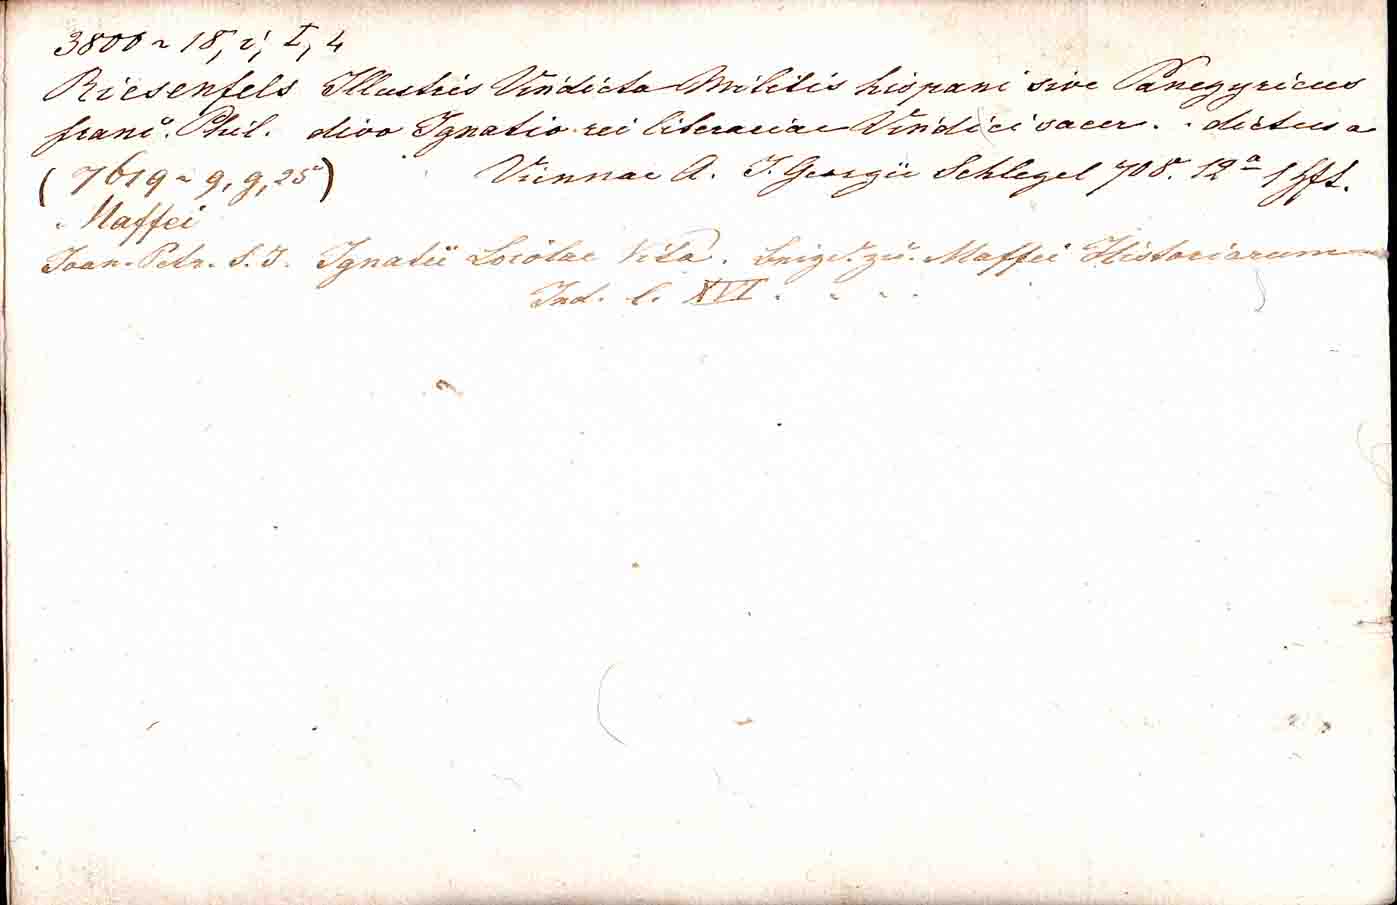 3800 ~ 18, i, I, 4
Riesenfels Illustris Vindicta Militis hispani sive Panegyricus
franc. Phil. divo Ignatio rei literariae Vindici sacer. . dictus a
(7619 ~ g, g, 25) Viennae A. I. Georgii Schlegel 708. 12º 1 Hft.
Maffei
Joan. Petr. S. J. Ignatii Loiolae Vita. Maffei Historiarum
Ind. l. XVI . . . .